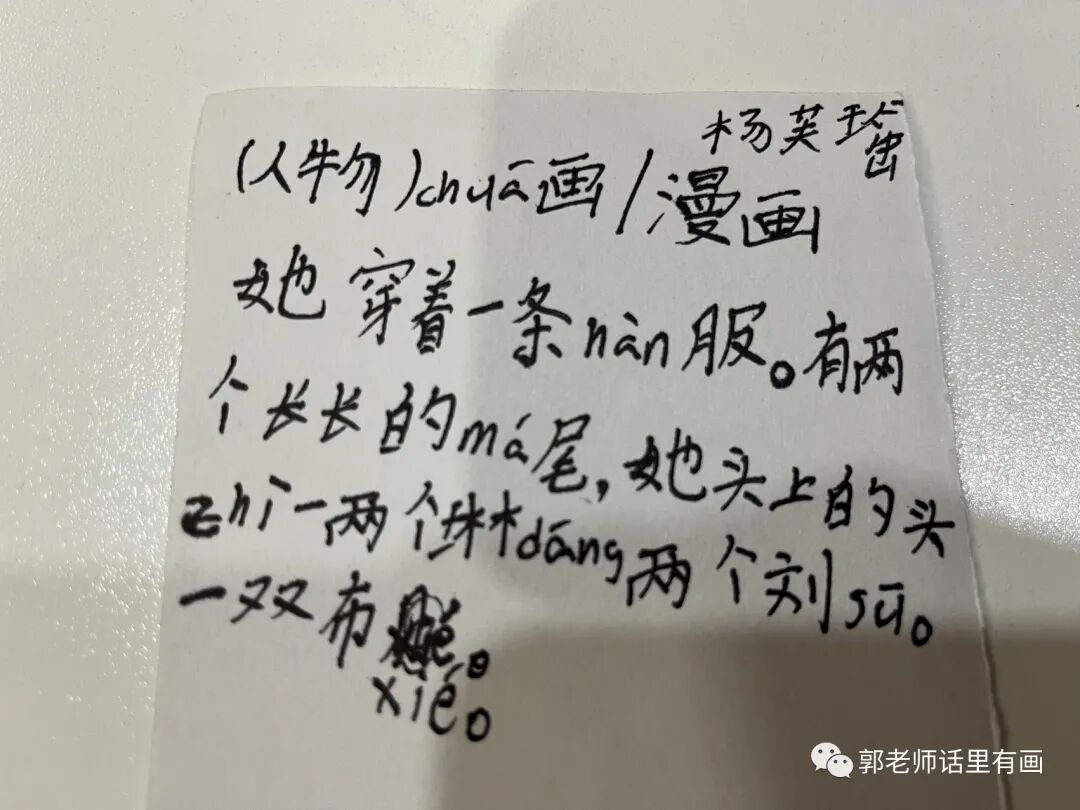 杨芙
(人物)chuā画/漫画
她穿着一条hàn服。有两
个长长的má尾,她头上的头
zhì一两个dāng两个刘sū。
一双布。
xié。
郭老师话里有画